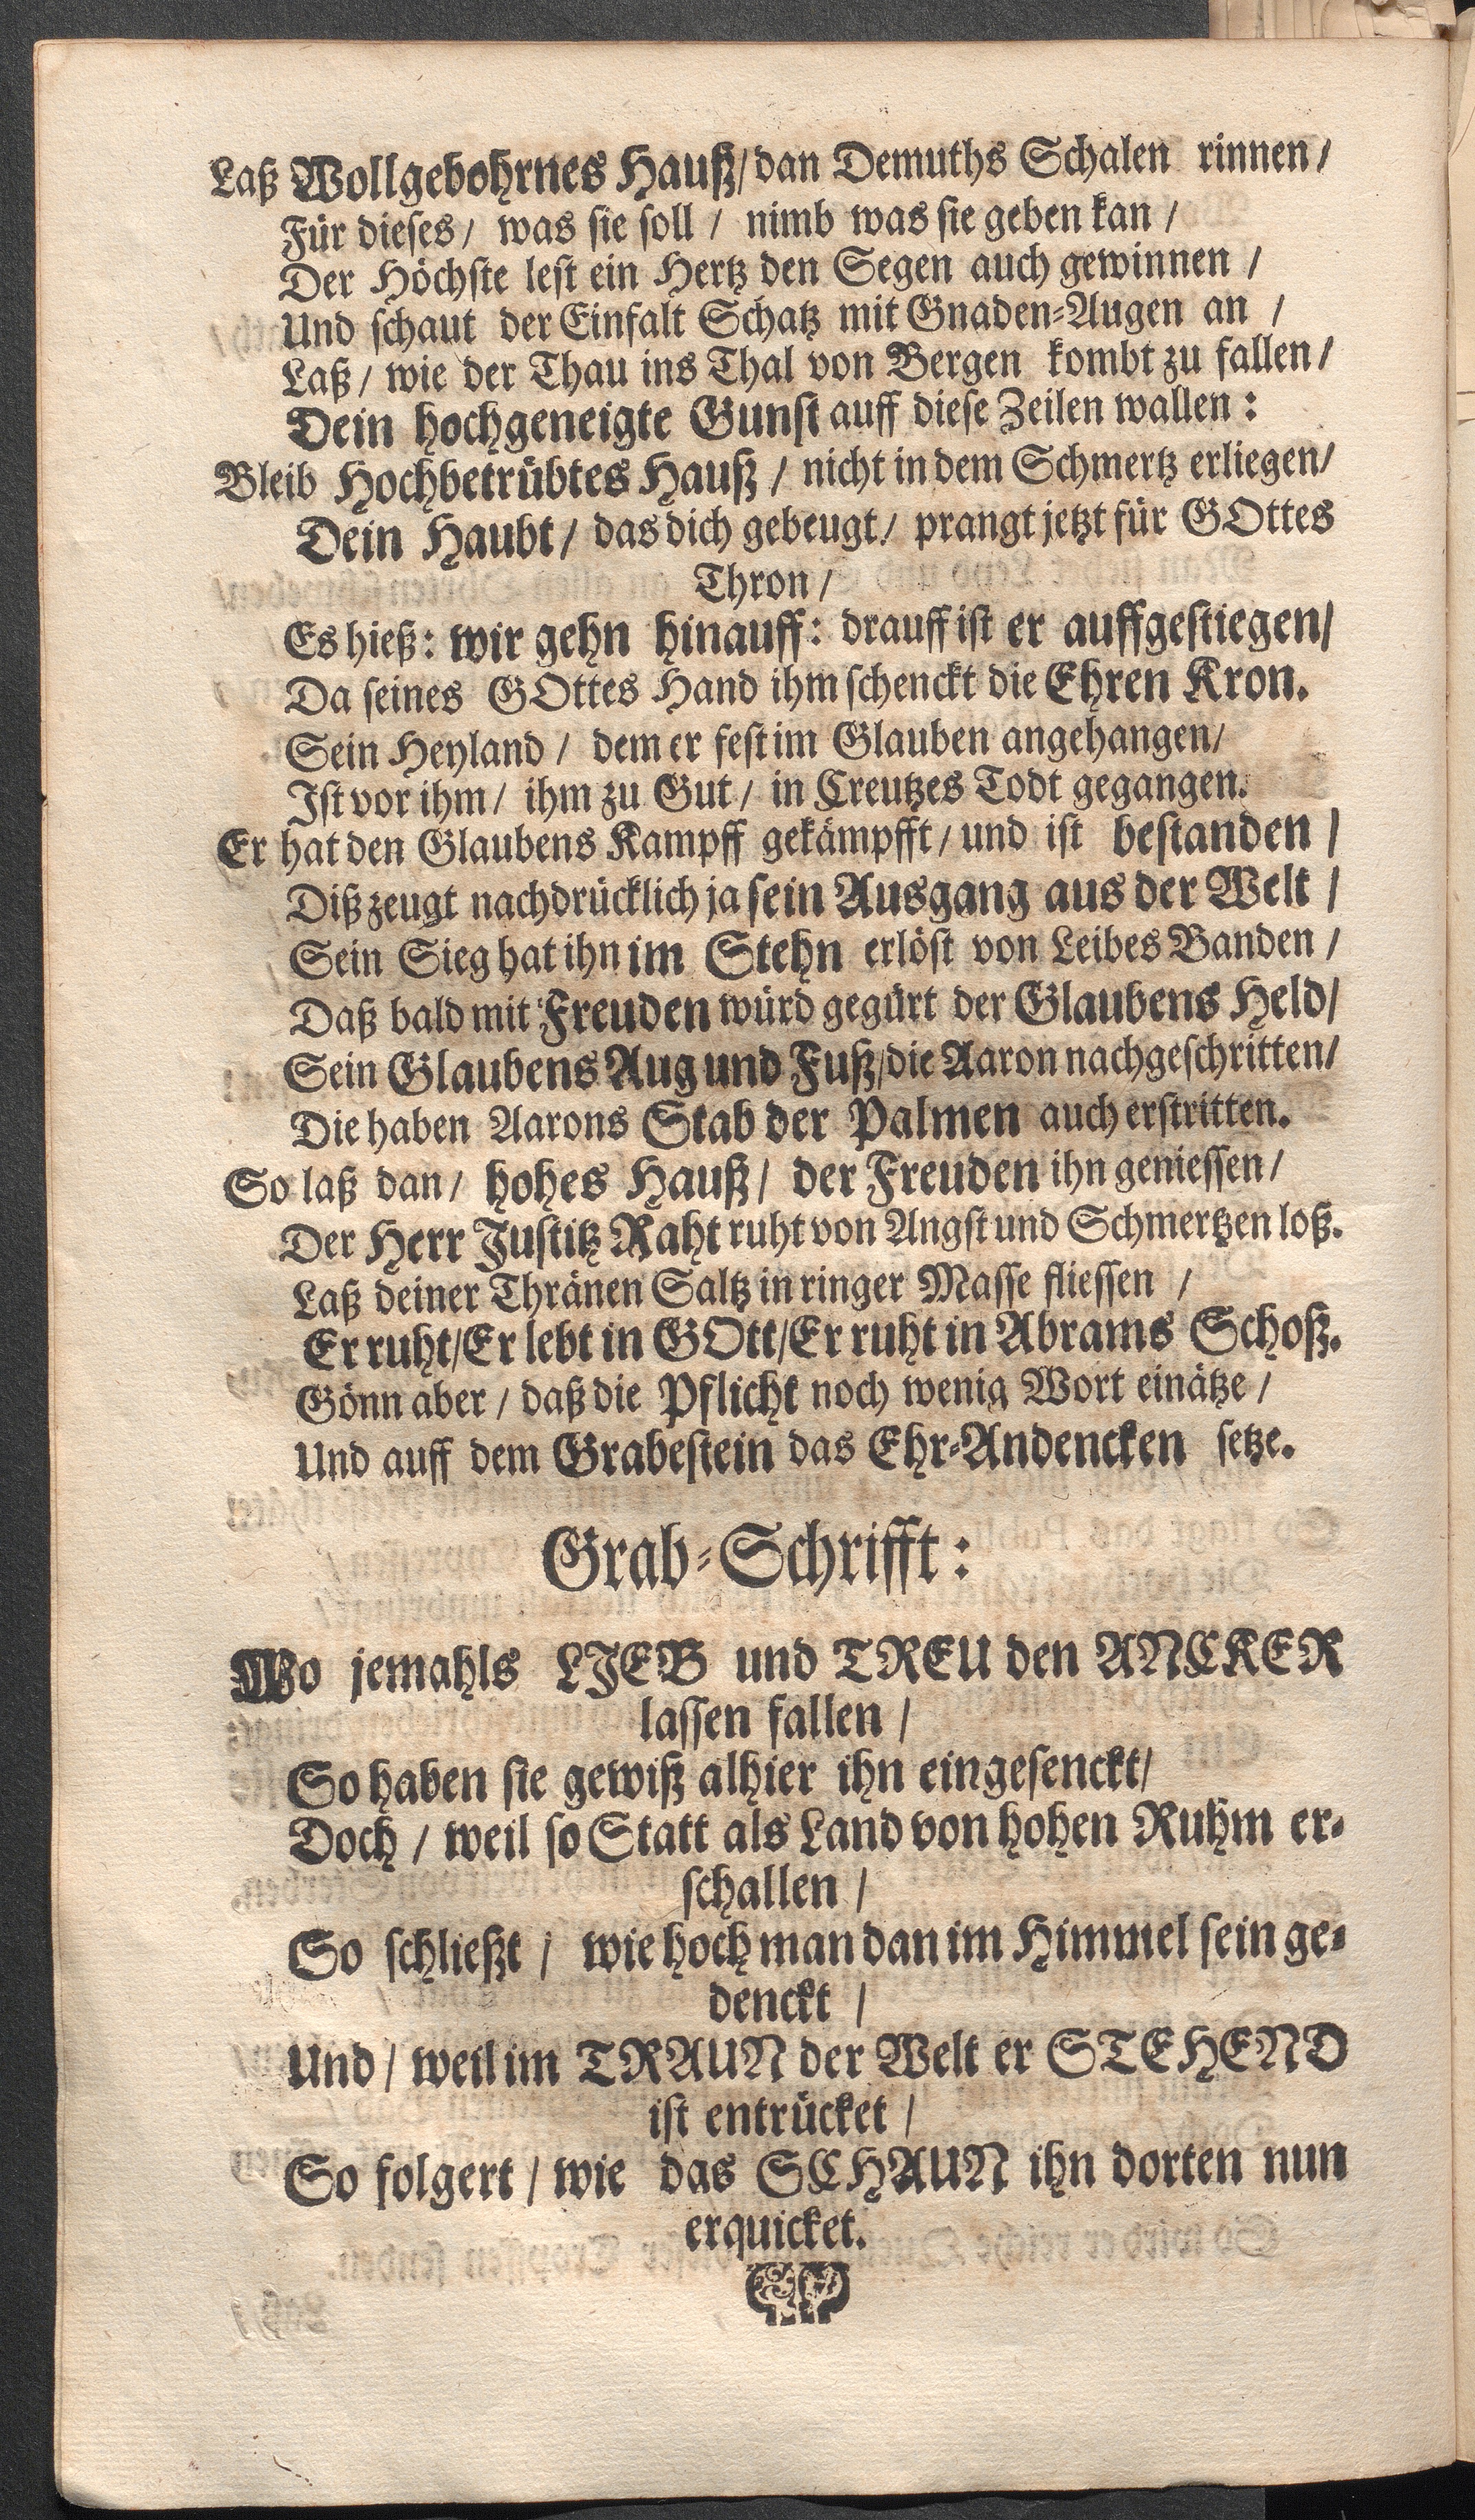 Laß Wollgebohrnes Hauß/ dan Demuths Schalen rinnen /
Für dieses / was sie soll / nimb was sie geben kan /
Der Höchste lest ein Hertz den Segen auch gewinnen /
Und schaut der Einfalt Schatz mit Gnaden-Augen an /
Laß / wie der Thau ins Thal von Bergen kombt zu fallen /
Dein hochgeneigte Gunst auff diese Zeilen wallen :
Bleib Hochbetrübtes Hauß / nicht in dem Schmertz erliegen/
Dein Haubt / das dich gebeugt / prangt jetzt für GOttes
Thron /
Es hieß : wir gehn hinauff : drauff ist er auffgestiegen/
Da seines GOttes Hand ihm schenckt die Ehren Kron.
Sein Heyland / dem er fest im Glauben angehangen/
Ist vor ihm / ihm zu Gut / in Creutzes Todt gegangen.
Er hat den Glaubens Kampff gekämpfft / und ist bestanden /
Diß zeugt nachdrücklich ja sein Ausgang aus der Welt /
Sein Sieg hat ihn im Stehn erlöst von Leibes Banden /
Daß bald mit Freuden würd gegürt der Glaubens Held/
Sein Glaubens Aug und Fuß/die Aaron nachgeschritten/
Die haben Aarons Stab der Palmen auch erstritten.
So laß dan / hohes Hauß / der Freuden ihn geniessen /
Der Herr Justitz Raht ruht von Angst und Schmertzen loß.
Laß deiner Thränen Saltz in ringer Masse fliessen /
Er ruht/Er lebt in GOtt/Er ruht in Abrams Schoß.
Gönn aber / daß die Pflicht noch wenig Wort einätze /
Und auff dem Grabestein das Ehr-Andencken setze.
Grab-Schrifft :
Wo jemahls LIEB und TREU den ANCKER
lassen fallen /
So haben sie gewiß alhier ihn eingesenckt/
Doch / weil so Statt als Land von hohen Ruhm er-
schallen /
So schließt / wie hoch man dan im Himmel sein ge-
denckt /
Und / weil im TRAUN der Welt er STEHEND
ist entrücket /
So folgert / wie das SCHAUN ihn dorten nun
erquicket.